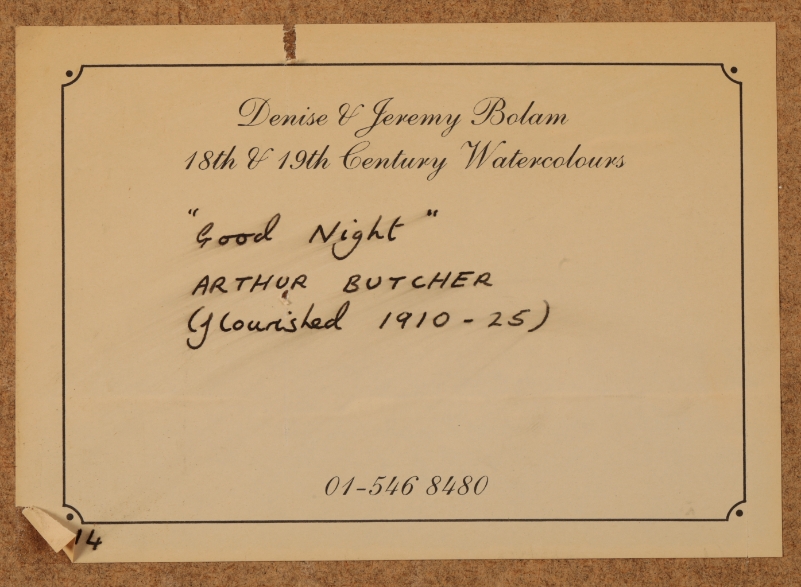 Denise & Jeremy Bolam
18th & 19th Century Watercolours
"Good Night"
ARTHUR BUTCHER
(flourished 1910-25)
01-546 8480
14